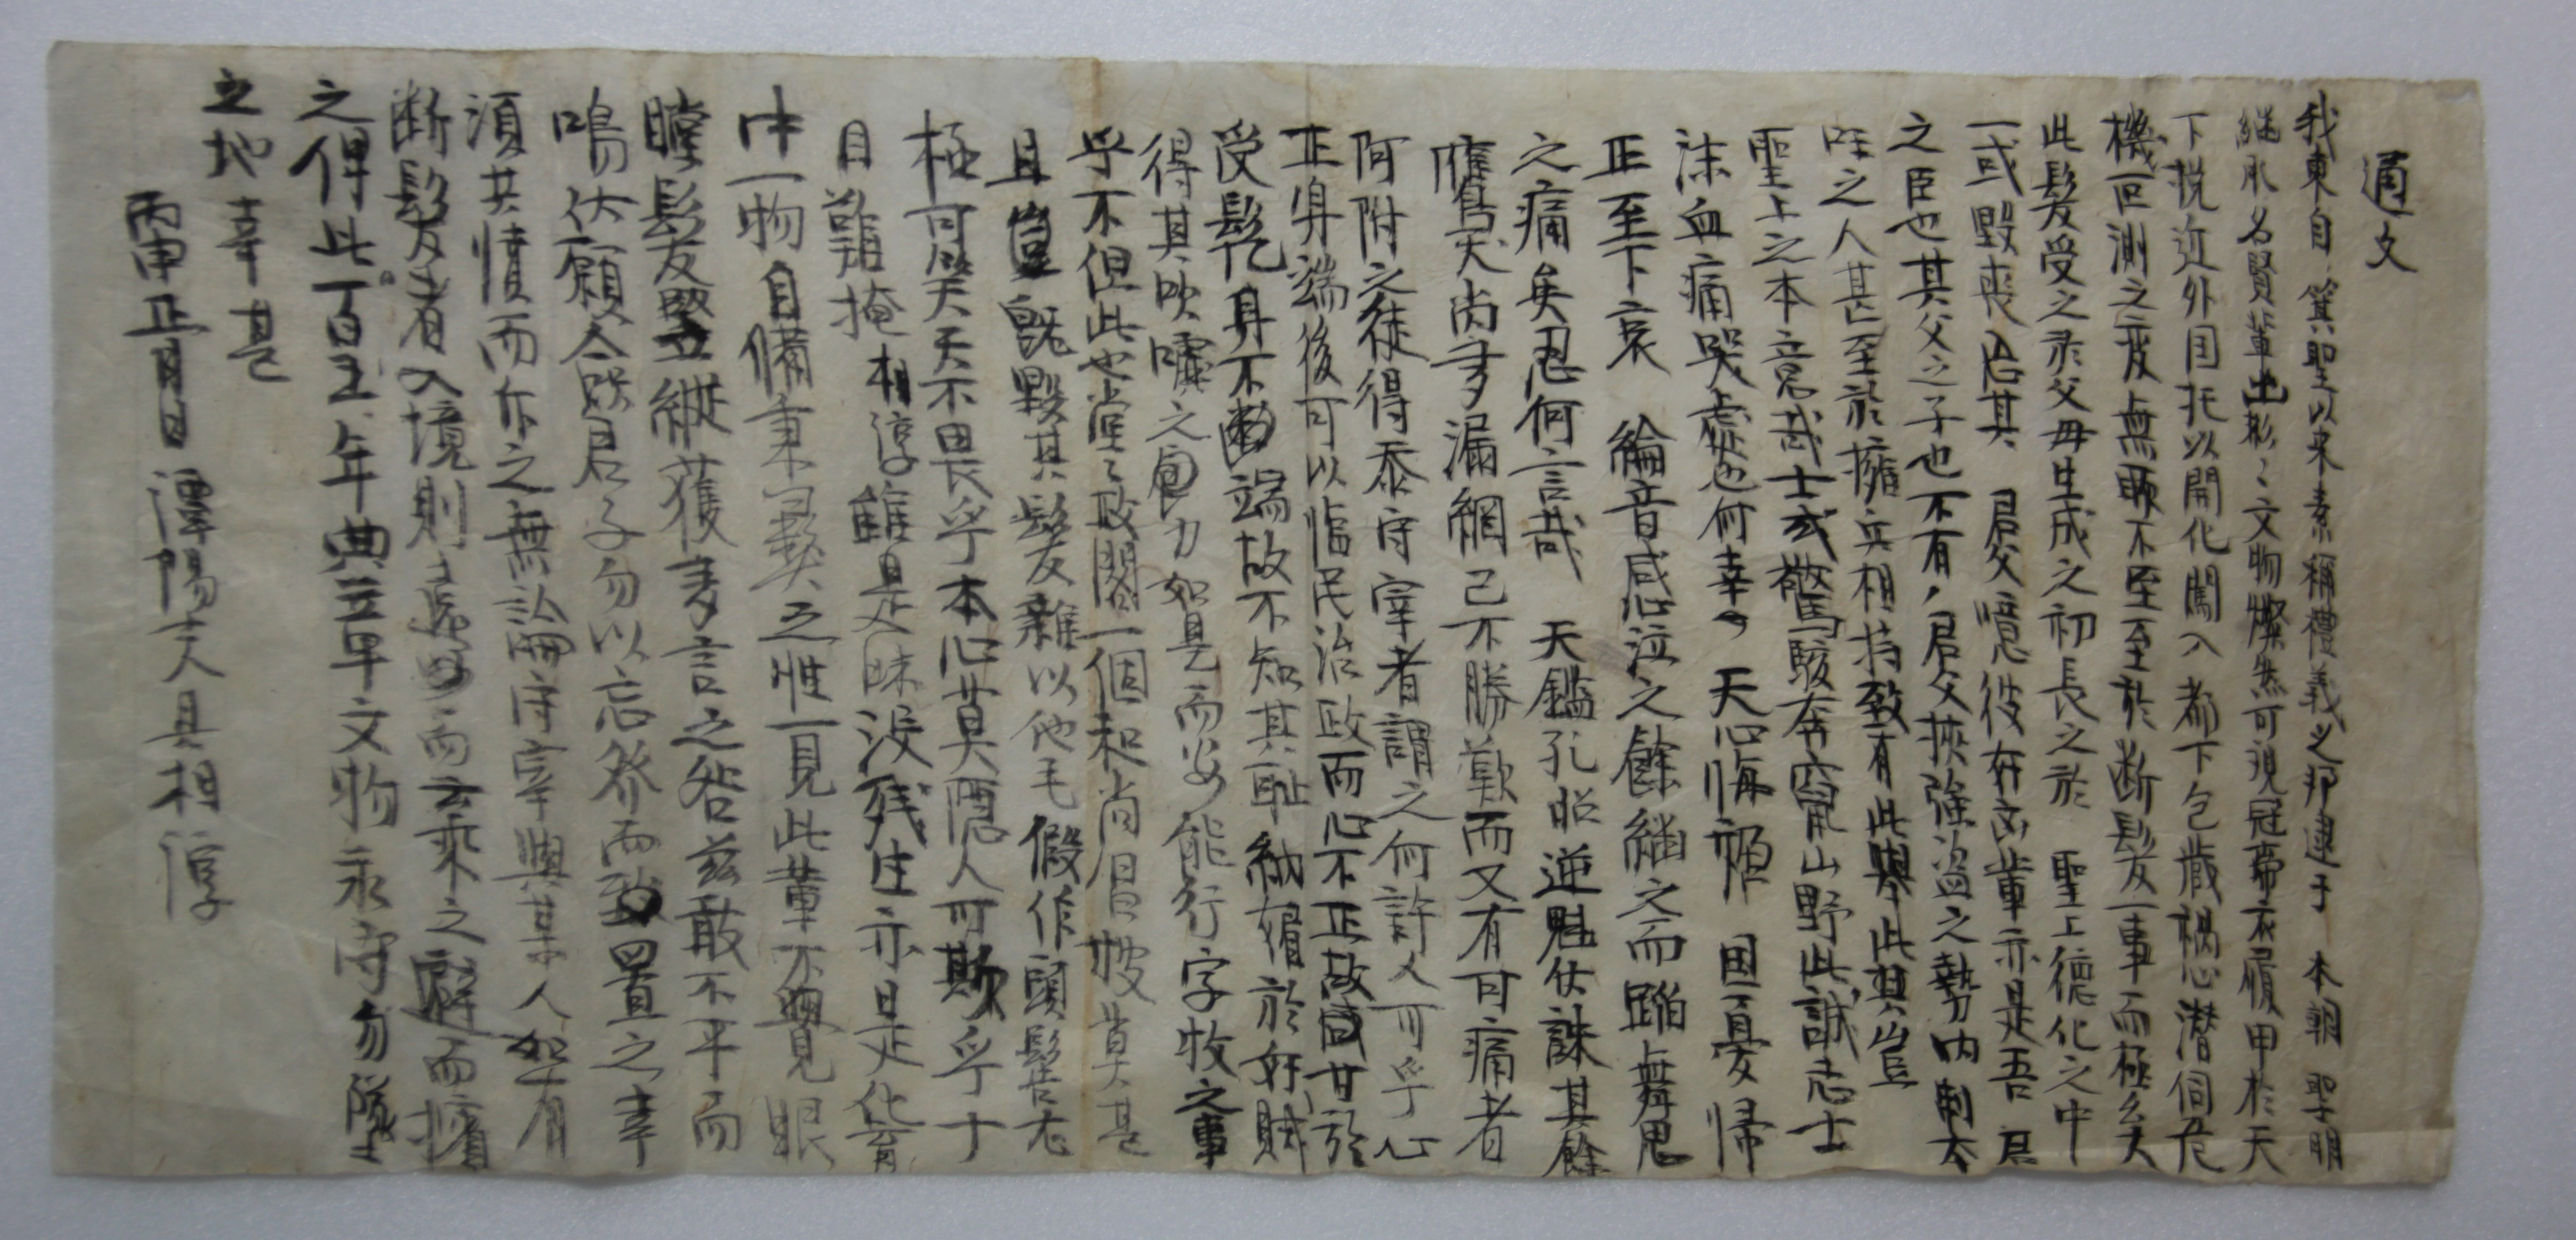 通文
我東自 箕聖以來素稱禮義之邦逮于 本朝 聖明
繼承名賢輩出彬〻文物燦然可覩冠帶衣履甲於天
下挽近外国托以開化闖入都下包藏禍心潛伺危
機叵測之變無所不至至於断髮一事而極矣
此髮受之於父母生成之初長之於 聖上德化之中
一或毁喪忘其 君父噫彼奸凶輩亦是吾 君
之臣也其父之子也不有 君父挾強盜之勢內制
之人甚至於擁兵相持致有此擧此其豈
聖上之本意哉士或驚駭奔竄山野此誠志士
沫血痛哭處也何幸 天心悔禍 因憂歸
正至下哀 綸音感泣之餘繼之而蹈舞思
之痛矣忍何言哉 天鑑孔昭逆魁伏誅其餘
鷹犬尚多漏網已不勝歎而又有可痛者
阿附之徒得忝守宰者謂之何許人可乎心
正身端後可以临民治政而心不正故甘於
受髡身不端故不知其恥納媚於奸賊
得其吹噓之力如是而安能行字牧之事
乎不但此也堂〻政閣一個和尚日披莫甚
且豈既毁其髮雜以他毛假作頭髻尤
極可笑天不畏乎本心莫隱人可欺乎十
目難掩相淳雖是昧没残生亦是化育
中一物自備秉彛之性一見此輩不覺眼
瞠髮竪縱獲妄言之咎玆敢不平而
鳴伏願僉君子勿以忘發而致置之幸
須共憤而斥之無論守宰與某人如有
断髮者入境則遠而去乘之避而擯
之俾此百年典章文物永守勿墜
之地幸甚
丙申正月日 潭陽士人具相淳